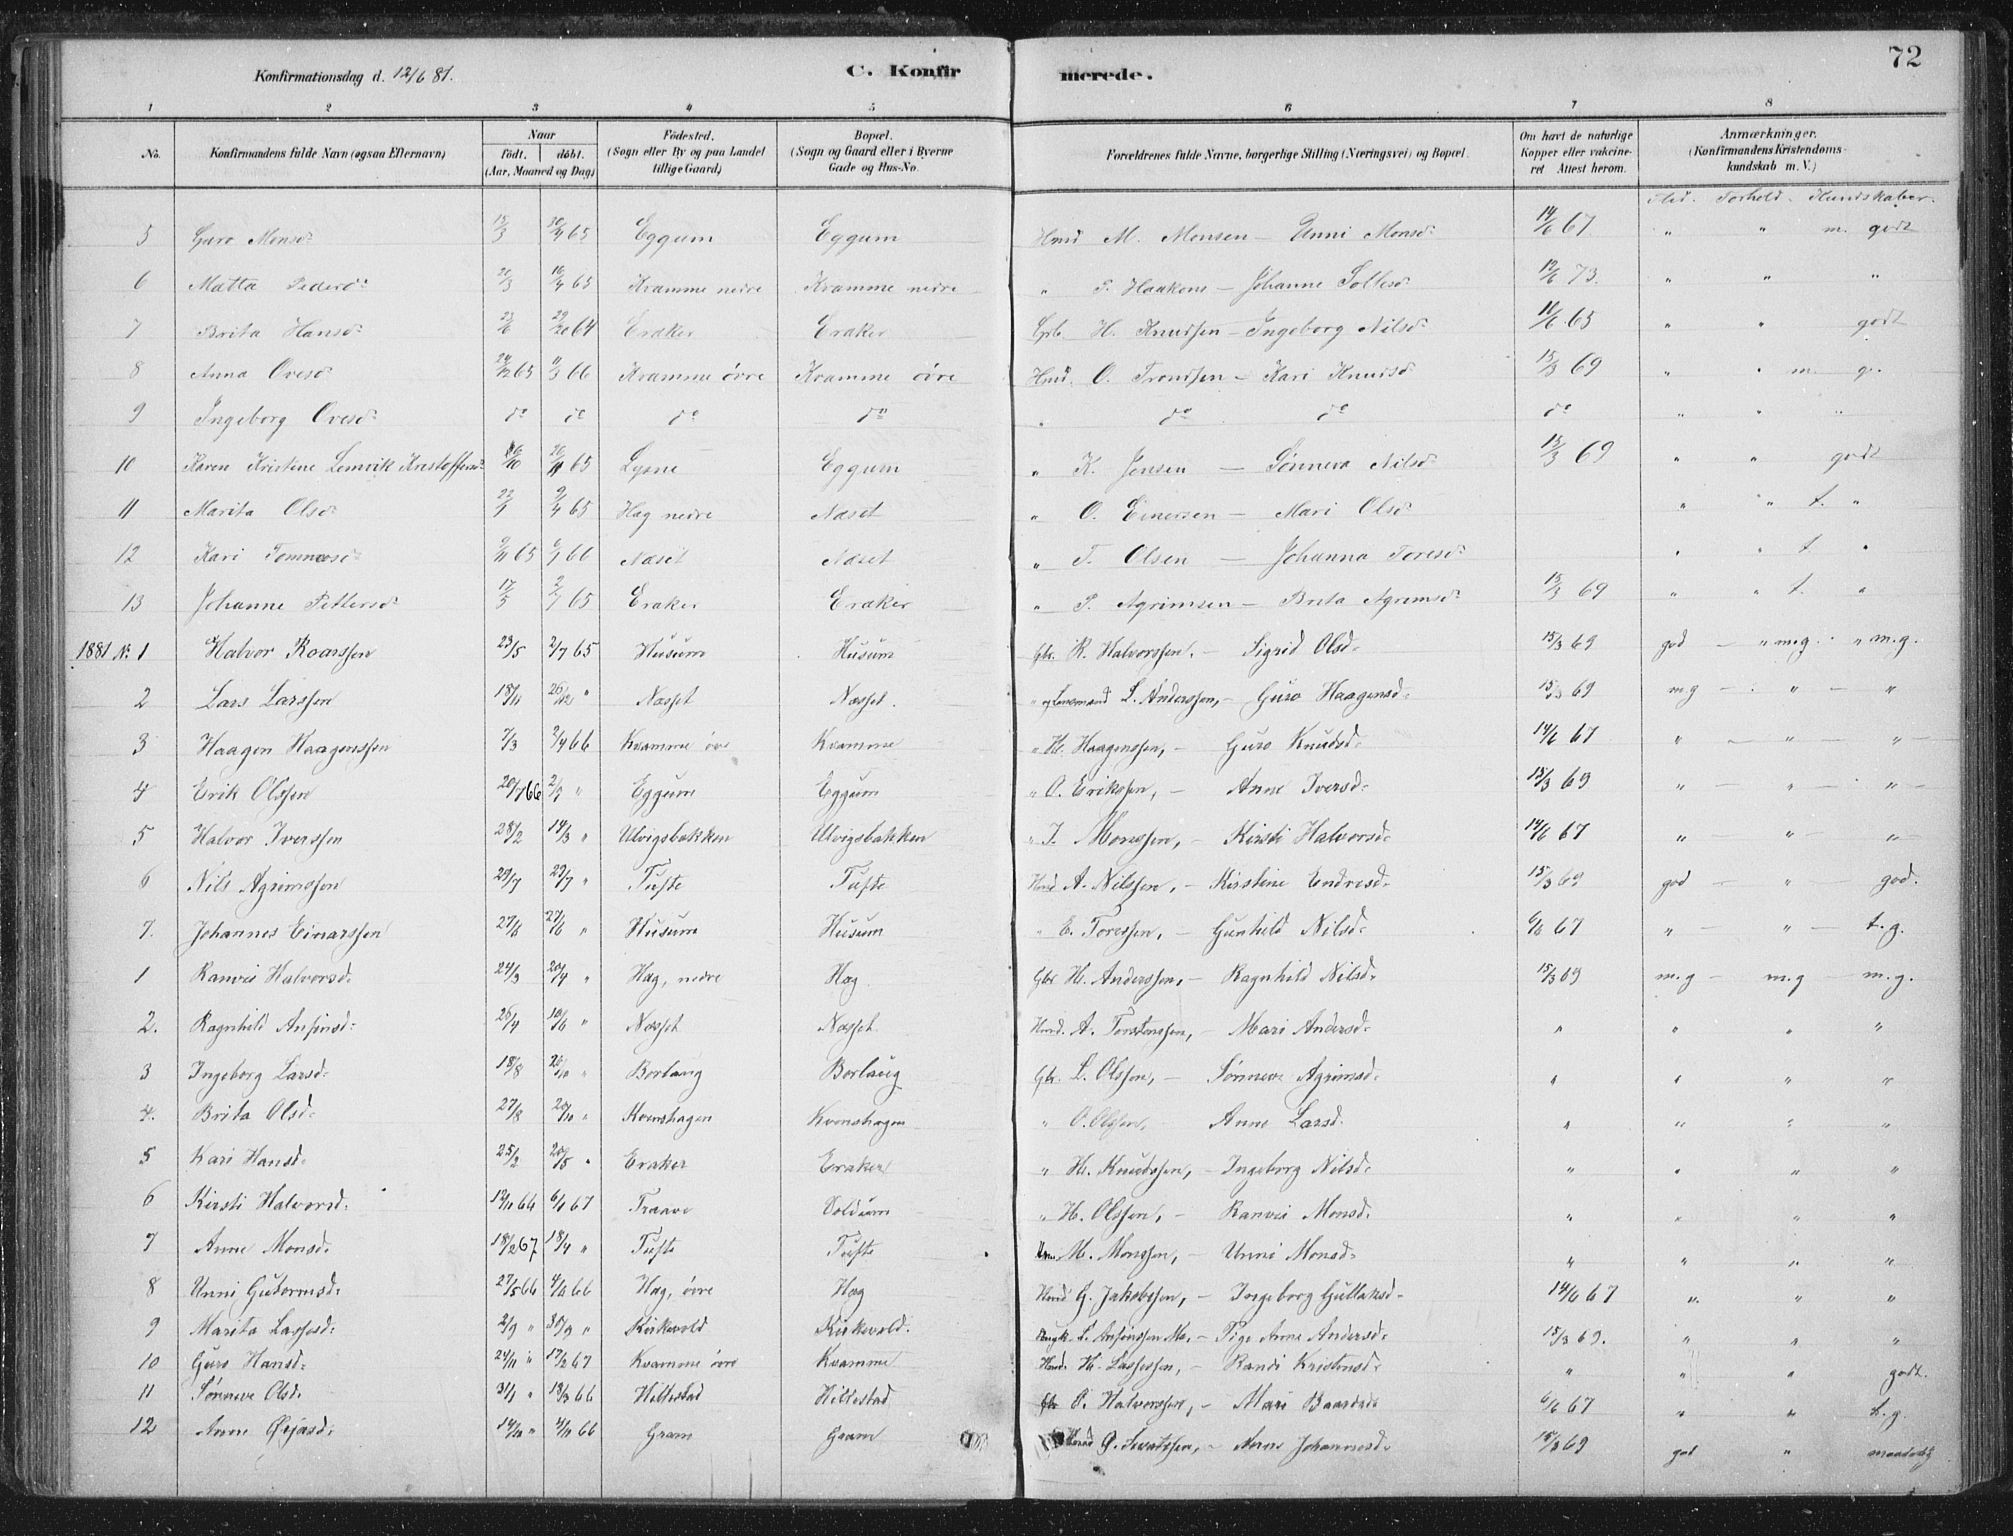 72
Konfirmationsdag d. 12/6 81. C. Konfirmerede.
1 2 3 4 5 6 7 8
No. Konfirmandens fulde Navn (ogsaa Efternavn) Naar födt. döbt. (Aar, Maaned og Dag) Födested. (Sogn eller By og paa Landet tillige Gaard) Bopæl. (Sogn og Gaard eller i Byerne Gade og Hus-No. Forældrenes fulde Navne, borgerlige Stilling (Næringsvei) og Bopæl. Om havt de naturlige Kopper eller vakcineret Attest herom. Anmærkninger. (Konfirmandens Kristendomskundskab m. V.)
Flid. Forhold. Kundskaber.
5 Guro Monsd: 65 Eggum Eggum Hmd M. Monsen – Unni Monsd: 14/6 67 " " m. godt
6 Matta Pedersd: 65 Kramme nedre Kramme nedre " P. Haakons – Johanne 12/6 73. " " "
7 Brita Hansd: 64 Eraker Eraker Grb. H. Knudsen – Ingeborg Nilsd: 11/6 65 " " godt
8 Anna Ovesd: 65 66 Kramme övre Kramme övre Hmd. O. Trondsen – Kari Knudsd 15/3 69 " " m. g.
9 Ingeborg Ovesd: do do do do " do do do " " "
10 Karen Kristine Lemvik Kristoffersd: 65 Lysne Eggum " K. Jensen – Sönneva Nilsd: 15/3 69 " " godt
11 Marita Olsd: 65 Hæg nedre Næset " O. Einersen – Mari Olsd: " " t. "
12 Kari Tommesd: 65 66 Næset Næset " T. Olsen – Johanna Toresd: " " t. "
13 Johanne Pettersd: 65 Eraker Eraker " P. Agrimsen – Brita Agrimsd: 15/3 69 " " t. "
1881 No. 1 Halvor Roarssen 23/5 2/7 65 Husum Husum Gbr. R. Halvorssen. – Sigrid Olsd: 15/3 69 god – " mg. " m.g.
2 Lars Larssen 18/11 26/12 " Næsset Næsset. " og Lensmand L. Anderssen, – Guro Haagensd: 15/3 69 m.g – " – "
3 Haagen Haagenssen 7/3 2/4 66 Kvamme övre Kvamme " H. Haagenssen, – Guro Knudsd: 14/6 67 " – " – "
4 Erik Olssen 20/1 66 " Eggum Eggum " O. Erikssen, – Anne Iversd: 15/3 69 " – " – "
5 Halvor Iverssen 28/2 14/3 " Ulvigsbakken Ulvigsbakken " I. Monssen, – Kirsti Halvorsd: 14/6 67 " " "
6 Nils Agrimssen 29/7 29/7 " Tufte Tufte Hmd A. Nilssen, – Kirstine Endresd: 15/3 69 god – " – god.
7. Johannes Einarssen 27/6 27/6 " Husum Husum " E. Toressen, – Gunhild Nilsd: 6/6 67 " – " – t.g.
1 Ranvei Halvorsd: 24/3 20/4 " Hæg, nedre Hæg Gbr H. Anderssen, – Ragnhild Nilsd: 15/3 69 m.g – m.g – m.g.
2. Ragnhild Anfinsd: 26/4 10/6 " Næsset Næsset Hmd. A. Torstenssen, – Mari Andersd: " " " "
3 Ingeborg Larsd: 18/8 26/10 " Borlaug Borlaug Gbr. L. Olssen, – Sönneve Agrimsd: " " " "
4. Brita Olsd: 27/8 20/10 " Kvenshagen Kvenshagen " O. Olssen, Anne Larsd: " " " "
5 Kari Hansd: 25/2 20/5 " Eraker Eraker " H. Knudssen, – Ingeborg Nilsd: " " " "
6 Kirsti Halvorsd: 12/11 66 6/1 67 Traave Voldum " H. Olssen, – Ranvei Monsd: " " " "
7 Anne Monsd: 18/2 67 18/4 " Tufte Tufte Hm. M. Monssen, – Unni Monsd: " " " "
8 Unni Gutormsd: 27/5 66 66 Hæg, övre Hæg Hmd G. Jakobssen, – Ingeborg Gullaksd: 14/6 67 " " "
9 Marita Lassesd: 2/9 " 30/9 " Kirkevold Kirkevold. Ungk. L. Anfinssen – Pige Anne Andersd: 15/3 69. " " "
10 Guro Hansd: 24/11 " 17/2 67 Kvamme övre Kvamme Hmd. H. Lassessen, – Randi Kristensd: " " " godt.
11 Sönneve Olsd: 31/1 " 18/3 66 Hillestad Hillestad Gbr O. Halvorssen, – Mari Baardsd: 6/6 67 " " t.g.
12 Anne Örjasd: 14/10 " 4/11 66 Gram Gram Hmd Ö. Sevatssen, – Anne Johannesd: 15/3 69 god " maadelig